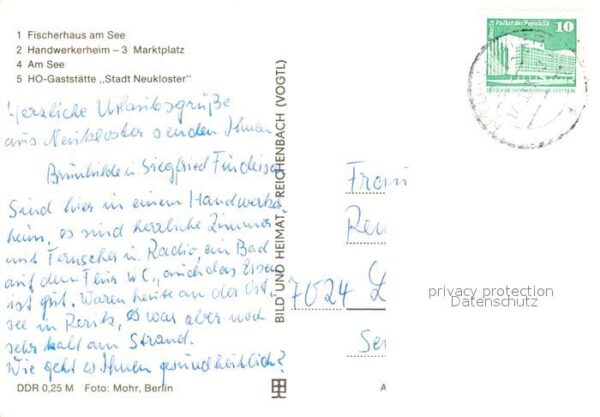 1 Fischerhaus am See
2 Handwerkerheim – 3 Marktplatz
4 Am See
5 HO-Gaststätte „Stadt Neukloster"
Herzliche Urlaubsgrüße
aus Neukloster senden Ihnen
Brünhilde u. Siegfried Findeisen
Sind hier in einem Handwerker-
heim, es sind herrliche Zimmer
mit Fernseher u. Radio, ein Bad
auf dem Flur WC, auch das Essen
ist gut. Waren heute an der Ost-
see in Rerik, es war aber noch
sehr kalt am Strand.
Wie geht es Ihnen gesundheitlich?
DDR 0,25 M Foto: Mohr, Berlin
BILD UND HEIMAT REICHENBACH (VOGTL)
Berlin, Palast der Republik
10
DEUTSCHE DEMOKRATISCHE REPUBLIK
Frau
Ren
7024 L
Se
A
privacy protection
Datenschutz